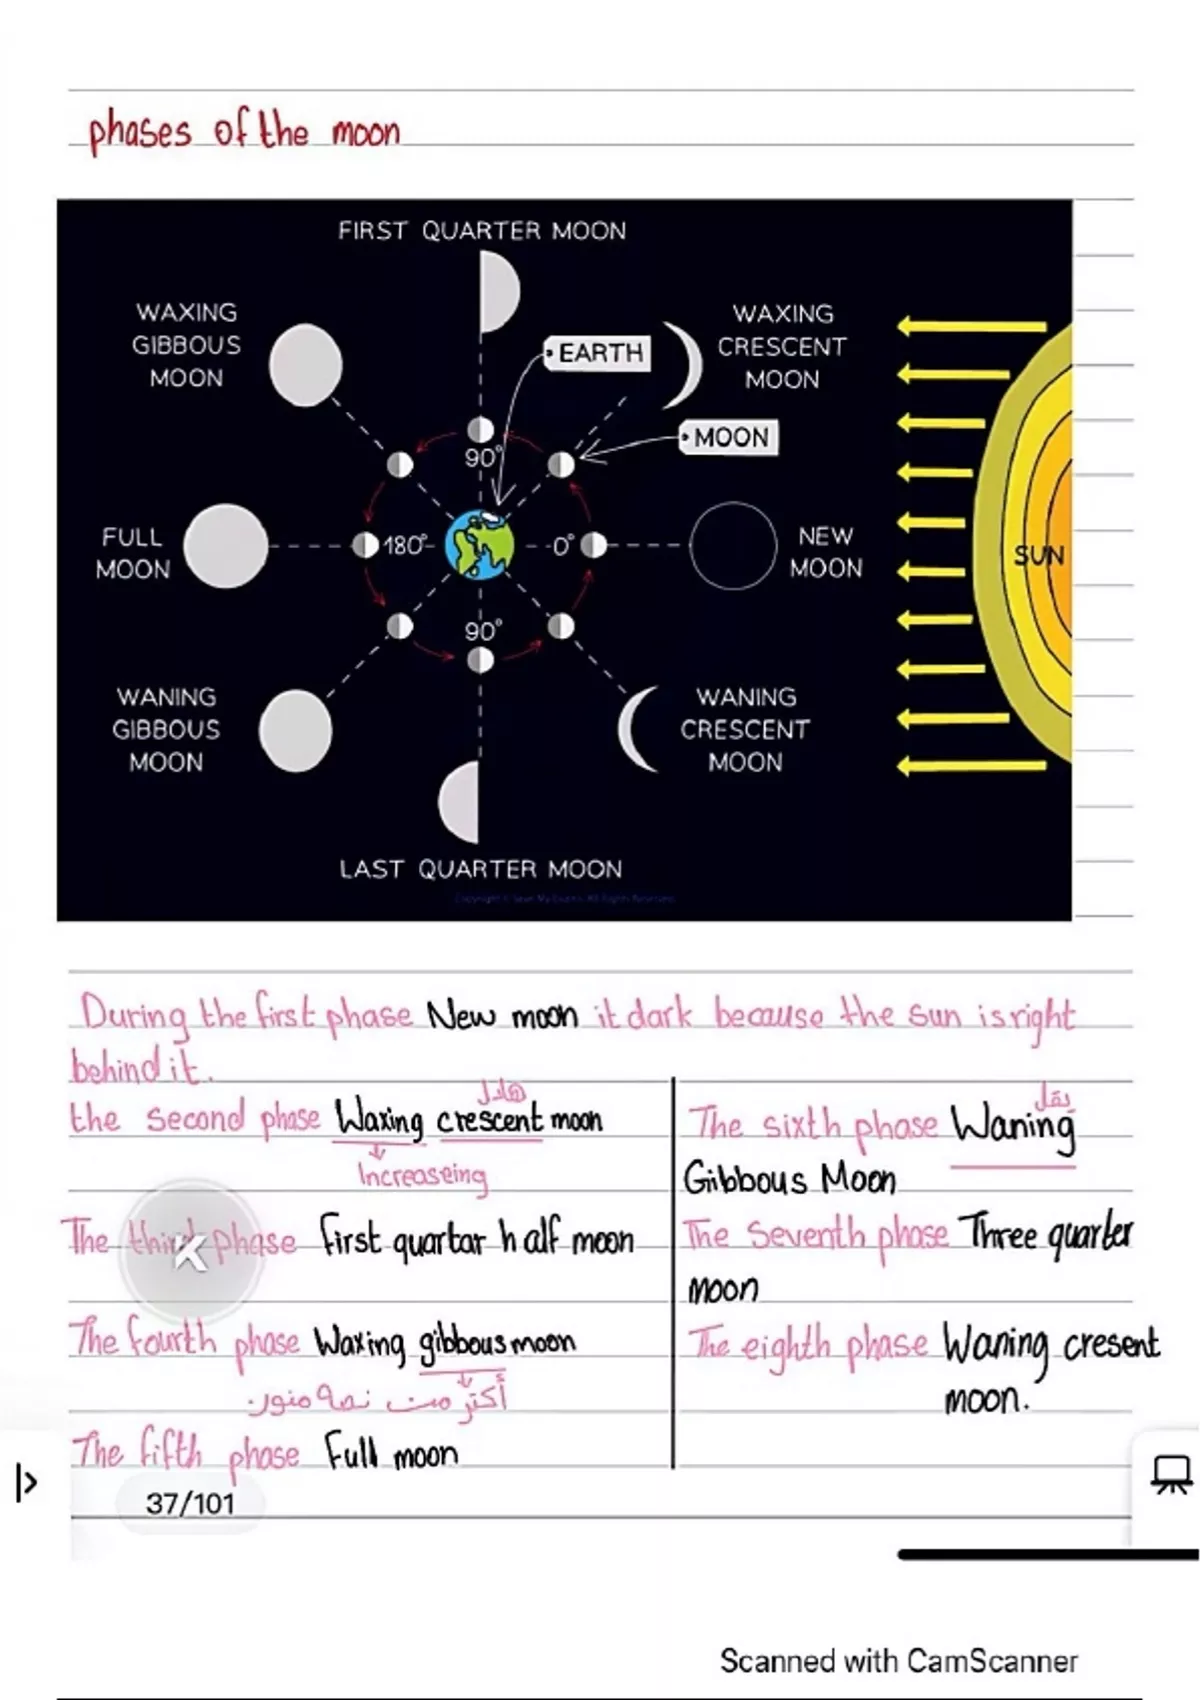 phases of the moon
FIRST QUARTER MOON
WAXING
GIBBOUS
MOON
WAXING
CRESCENT
MOON
EARTH
MOON
90°
FULL
MOON
180°
0°
NEW
MOON
SUN
90°
WANING
GIBBOUS
MOON
WANING
CRESCENT
MOON
LAST QUARTER MOON
During the first phase New moon it dark because the sun is right
behind it.
هلال
the second phase Waxing crescent moon
Increaseing
The third phase first quartar half moon
The fourth phase Waxing gibbous moon
أكثر من نصه منور
The fifth phase Full moon
يقل
The sixth phase Waning
Gibbous Moon
The seventh phase Three quarter
moon
The eighth phase Waning cresent
moon.
37/101
Scanned with CamScanner